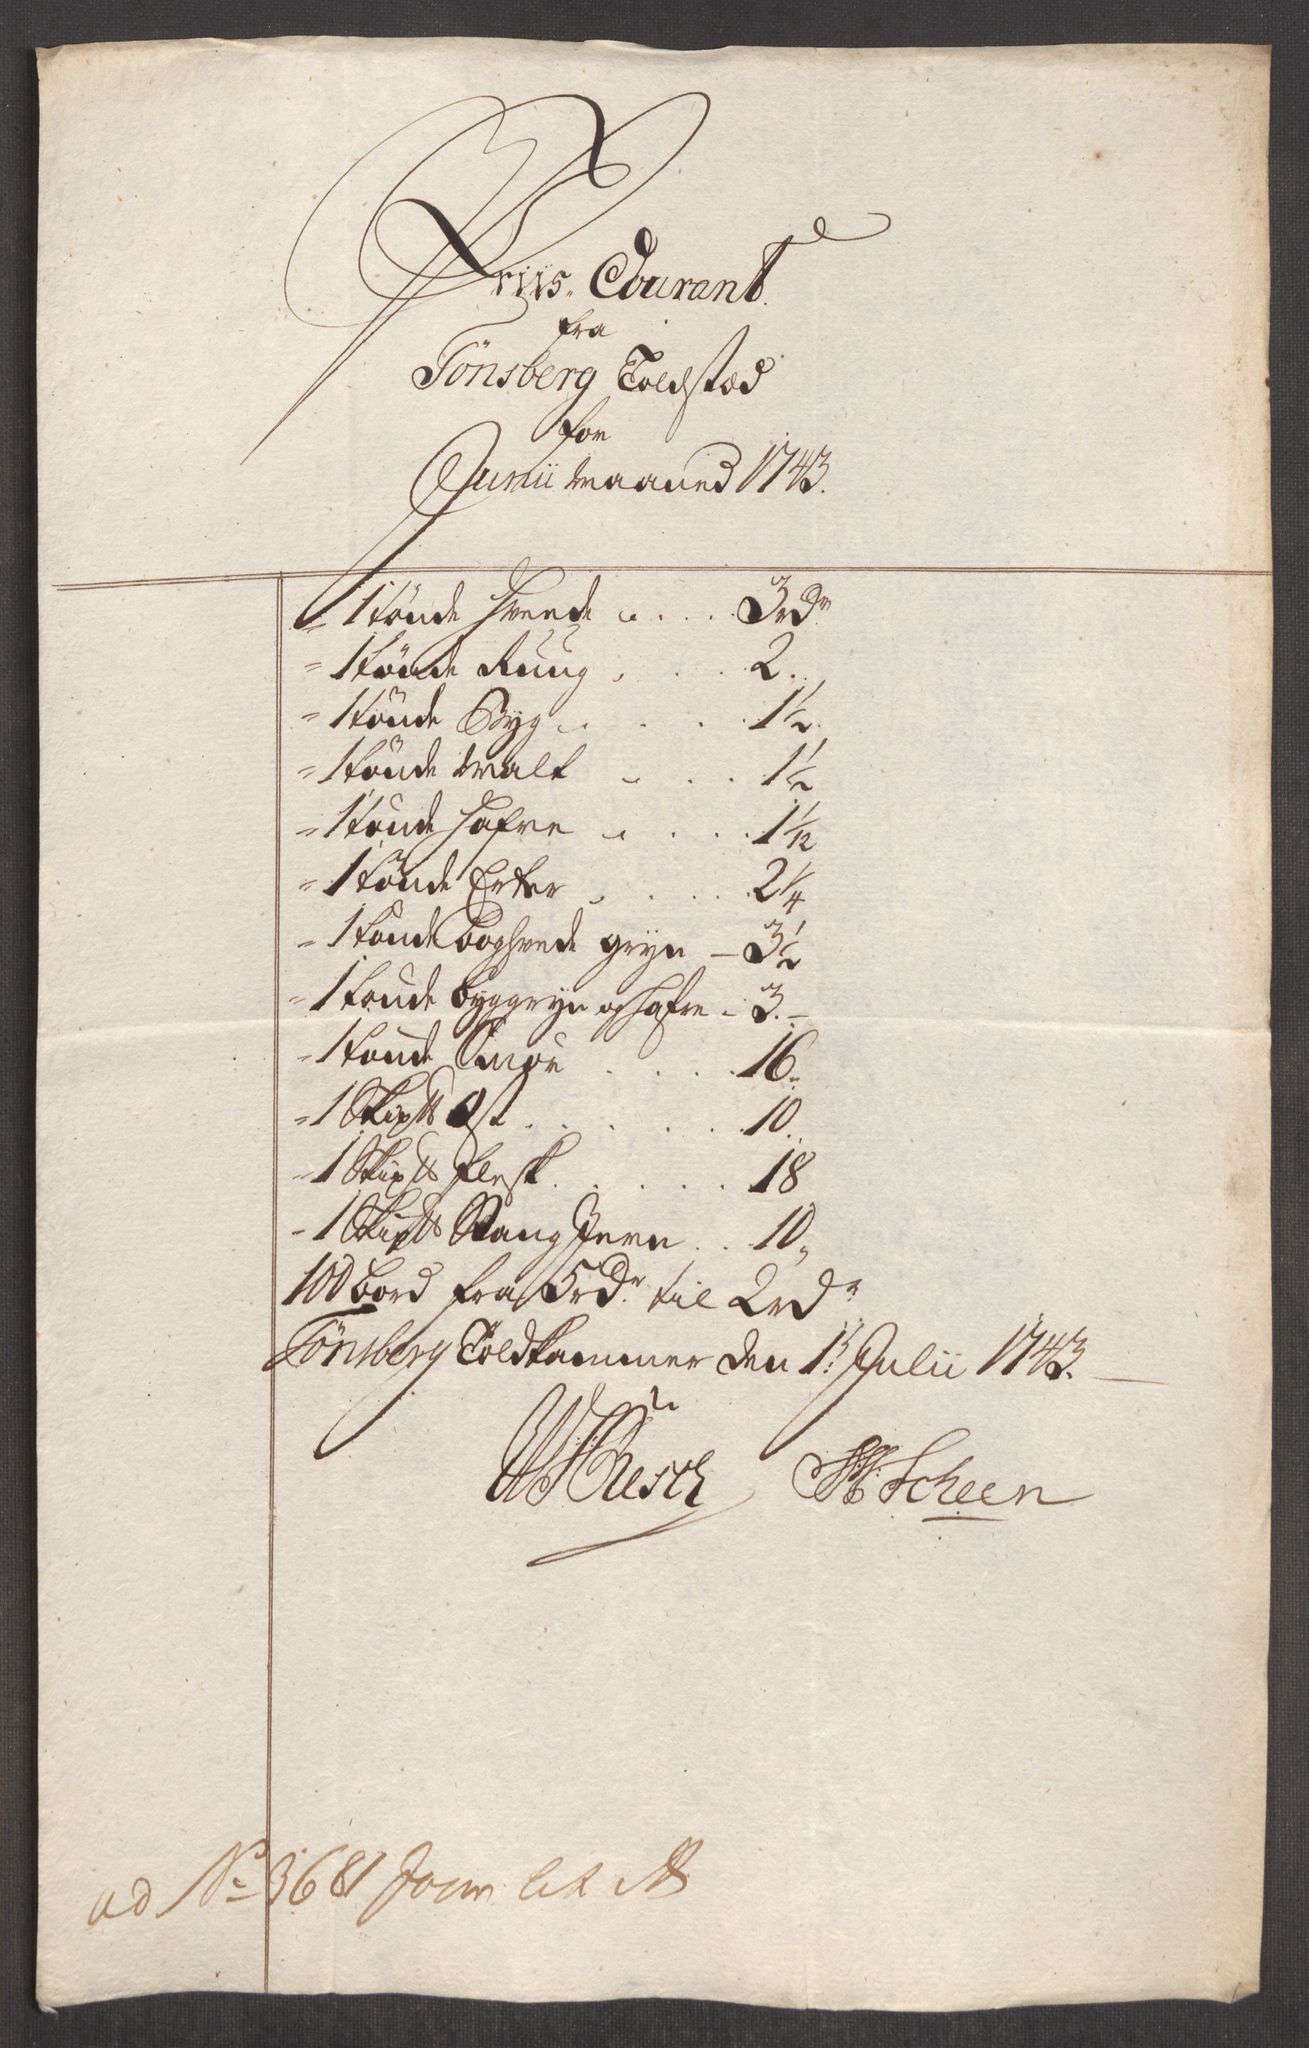 Priis Courant
fra
Tönsberg Toldstæd
for
Junii Maaned 1743.
1 tönde Hveede . . . . 3 rdr
1 tönde Ruug . . . . 2 ..
1 tönde Byg . . . . 1 1/2.
1 tönde Malt . . . . 1 1/2
1 tönde Hafre . . . . 1 1/12
1 tönde Erter . . . . 2 1/4
1 tönde boghvede gryn – 3 1/2
1 tönde byggryn og Hafre – 3. –
1 tönde Smør . . . . 16.
1 Skip℔ Ost . . . . . 10..
1 Skip℔ flesk . . . . . 18
1 Skip℔ Stang Jern . . 10„
100 bord fra 5 rdr til 2 rdr
Tönsberg Toldkammer den 1t Julii 1743.
Resch Scheen
ad No 3681 Jour lit A